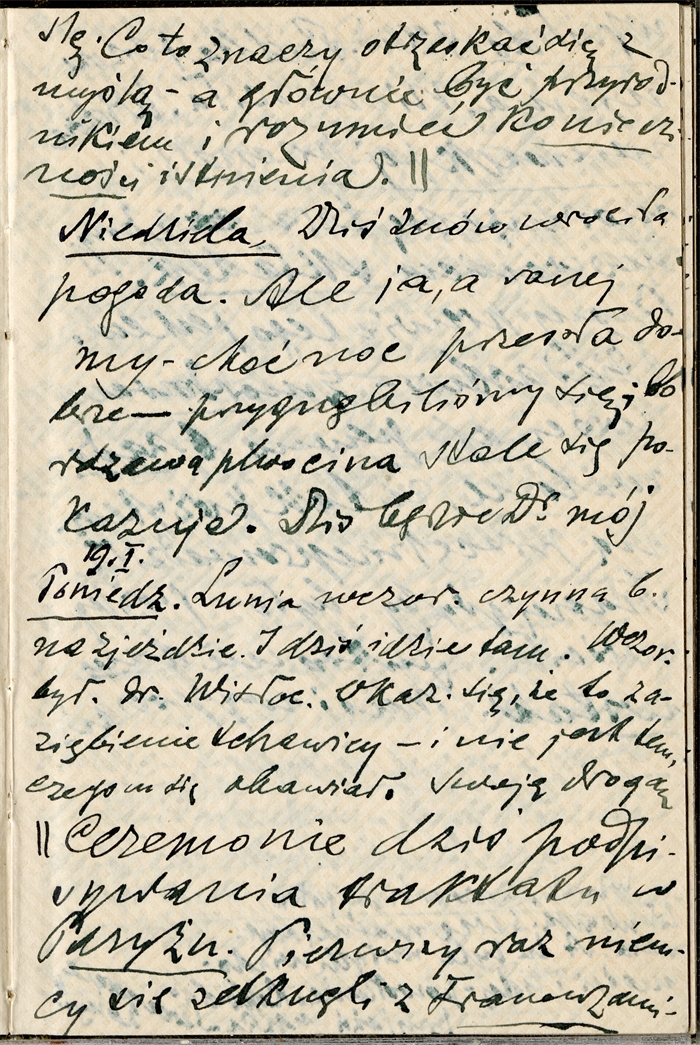 się. Co to znaczy otrzaskać się z
myślą - a głównie być przyrod-
nikiem i rozumieć koniecz-
ności istnienia. ||
Niedziela, Dziś znów wróciła
pogoda. Ale ja, a ranej
my - choć noc przeszła do-
brze - przygnębiliśmy się, bo
rdzawa plwocina stale się po-
kazuje. Dziś będzie Dr mój
19.I.
Poniedz. Lunia wczor. czynna b.
na zjeździe. I dziś idzie tam. Wczor.
był. dr. Wisłoc. Okaz. się, że to za-
ziębienie tchawicy - i nie jest tem,
czegom się obawiał. Swoją drogą
|| Ceremonie dziś podpi-
sywania traktatu w
Paryżu. Pierwszy raz niem-
cy się zetknęli z Francuzami-